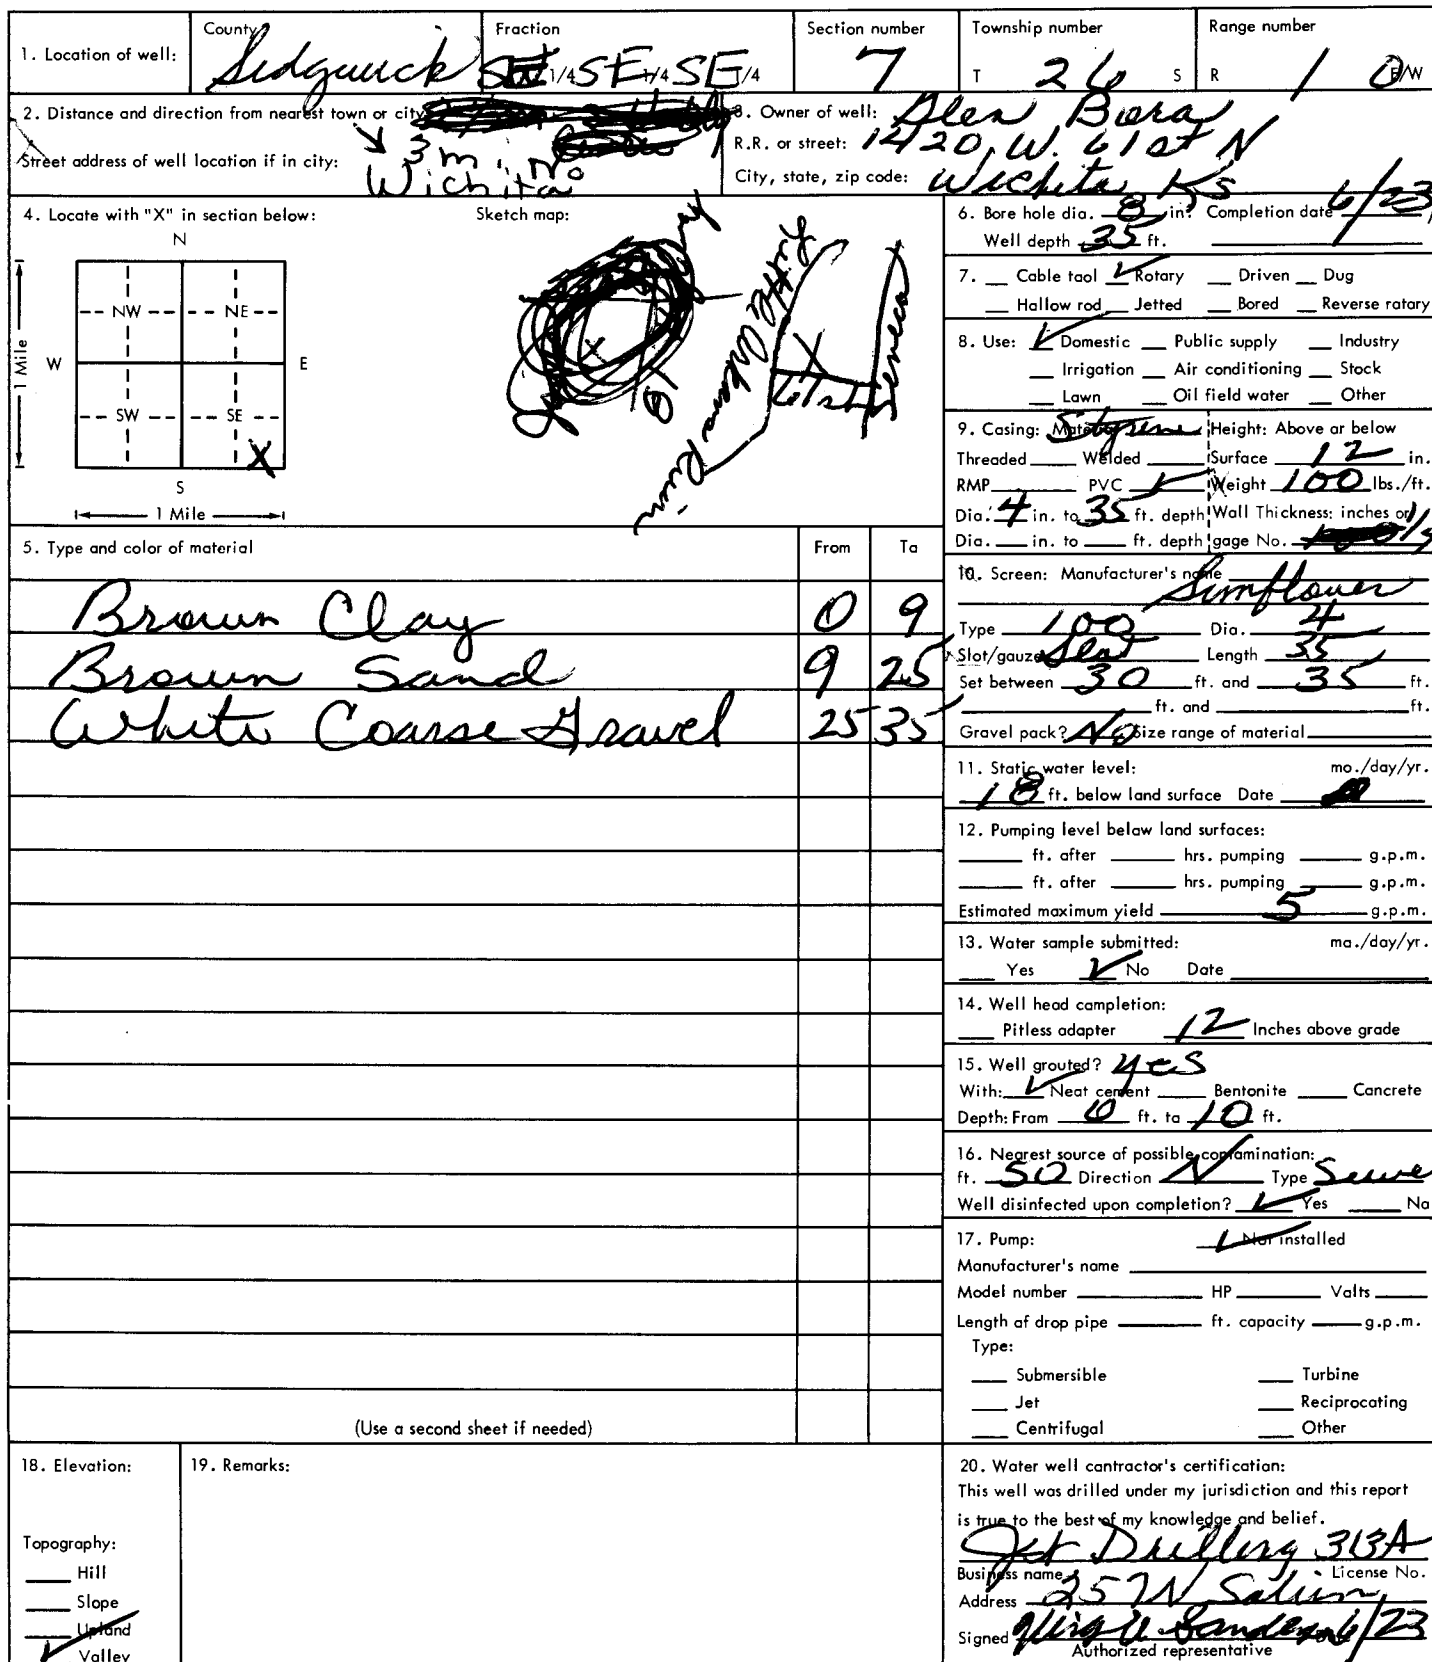 1. Location of well: County Sedgwick Fraction SE 1/4 SE 1/4 SE 1/4 Section number 7 Township number T 26 S Range number R 1 E/W
2. Distance and direction from nearest town or city
3 mi. No
Wichita
Street address of well location if in city:
3. Owner of well: Glen Bora
R.R. or street: 1420 W. 61st N
City, state, zip code: Wichita Ks
4. Locate with "X" in section below: Sketch map:
N
NW NE
W E
1 Mile
SW SE
X
S
1 Mile
Little Arkansas River
X
61st
Seneca
5. Type and color of material From To
Brown Clay 0 9
Brown Sand 9 25
White Coarse Gravel 25 35
(Use a second sheet if needed)
6. Bore hole dia. 8 in. Completion date 6/23
Well depth 35 ft.
7. Cable tool ✓ Rotary Driven Dug
Hollow rod Jetted Bored Reverse rotary
8. Use: ✓ Domestic Public supply Industry
Irrigation Air conditioning Stock
Lawn Oil field water Other
9. Casing: Material Styrene Height: Above or below
Threaded Welded Surface 12 in.
RMP PVC ✓ Weight 100 lbs./ft.
Dia. 4 in. to 35 ft. depth Wall Thickness: inches or
Dia. in. to ft. depth gage No.
10. Screen: Manufacturer's name
Sunflower
Type 100 Dia. 4
Slot/gauze Slot Length 35
Set between 30 ft. and 35 ft.
ft. and ft.
Gravel pack? No Size range of material
11. Static water level: mo./day/yr.
18 ft. below land surface Date
12. Pumping level below land surfaces:
ft. after hrs. pumping g.p.m.
ft. after hrs. pumping g.p.m.
Estimated maximum yield 5 g.p.m.
13. Water sample submitted: mo./day/yr.
Yes ✓ No Date
14. Well head completion:
Pitless adapter 12 Inches above grade
15. Well grouted? yes
With: ✓ Neat cement Bentonite Concrete
Depth: From 0 ft. to 10 ft.
16. Nearest source of possible contamination:
ft. 50 Direction N Type Sewe
Well disinfected upon completion? ✓ Yes No
17. Pump: ✓ Not installed
Manufacturer's name
Model number HP Volts
Length of drop pipe ft. capacity g.p.m.
Type:
Submersible Turbine
Jet Reciprocating
Centrifugal Other
18. Elevation:
Topography:
Hill
Slope
Upland
✓ Valley
19. Remarks:
20. Water well contractor's certification:
This well was drilled under my jurisdiction and this report
is true to the best of my knowledge and belief.
Jet Drilling 313A
Business name License No.
Address 257 N
Signed 6/23
Authorized representative